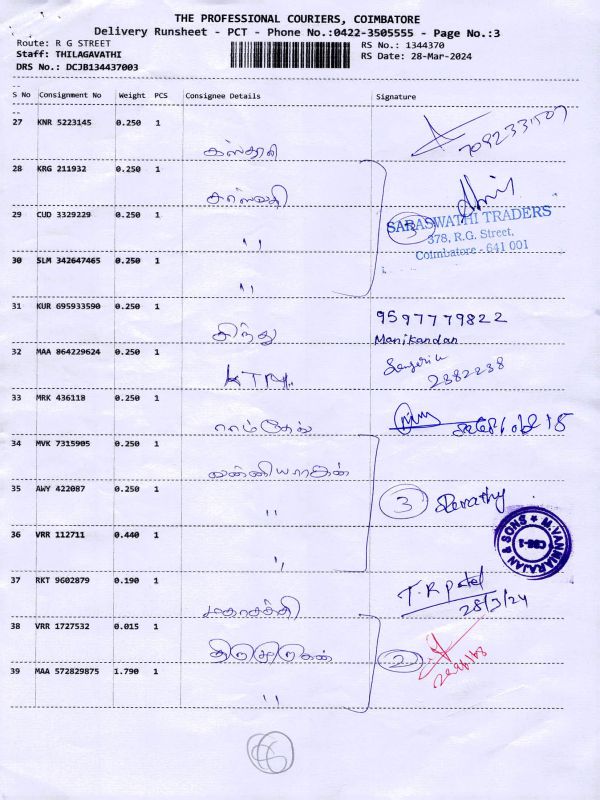 THE PROFESSIONAL COURIERS, COIMBATORE
Delivery Runsheet - PCT - Phone No.:0422-3505555 - Page No.:3
Route: R G STREET
RS No.: 1344370
Staff: THILAGAVATHI
RS Date: 28-Mar-2024
DRS No.: DCJB134437003
S No Consignment No Weight PCS Consignee Details Signature
27 KNR 5223145 0.250 1
கஸ்தூரி
28 KRG 211932 0.250 1
சரஸ்வதி
29 CUD 3329229 0.250 1
" 3
SARASWATHI TRADERS
378, R.G. Street,
Coimbatore - 641 001
30 SLM 342647465 0.250 1
"
31 KUR 695933590 0.250 1
சிந்து
9597779822
Manikandan
32 MAA 864229624 0.250 1
KTM
2382238
33 MRK 436118 0.250 1
ராம்தேவ்
34 MVK 7315905 0.250 1
வன்னியராஜன்
35 AWY 422087 0.250 1
" 3
M. VANNIARAJAN & SONS
CBE-1
36 VRR 112711 0.440 1
"
37 RKT 9602879 0.190 1
மகாசக்தி
T.R Patel
28/3/24
38 VRR 1727532 0.015 1
திருமுருகன் 2
39 MAA 572829875 1.790 1
"